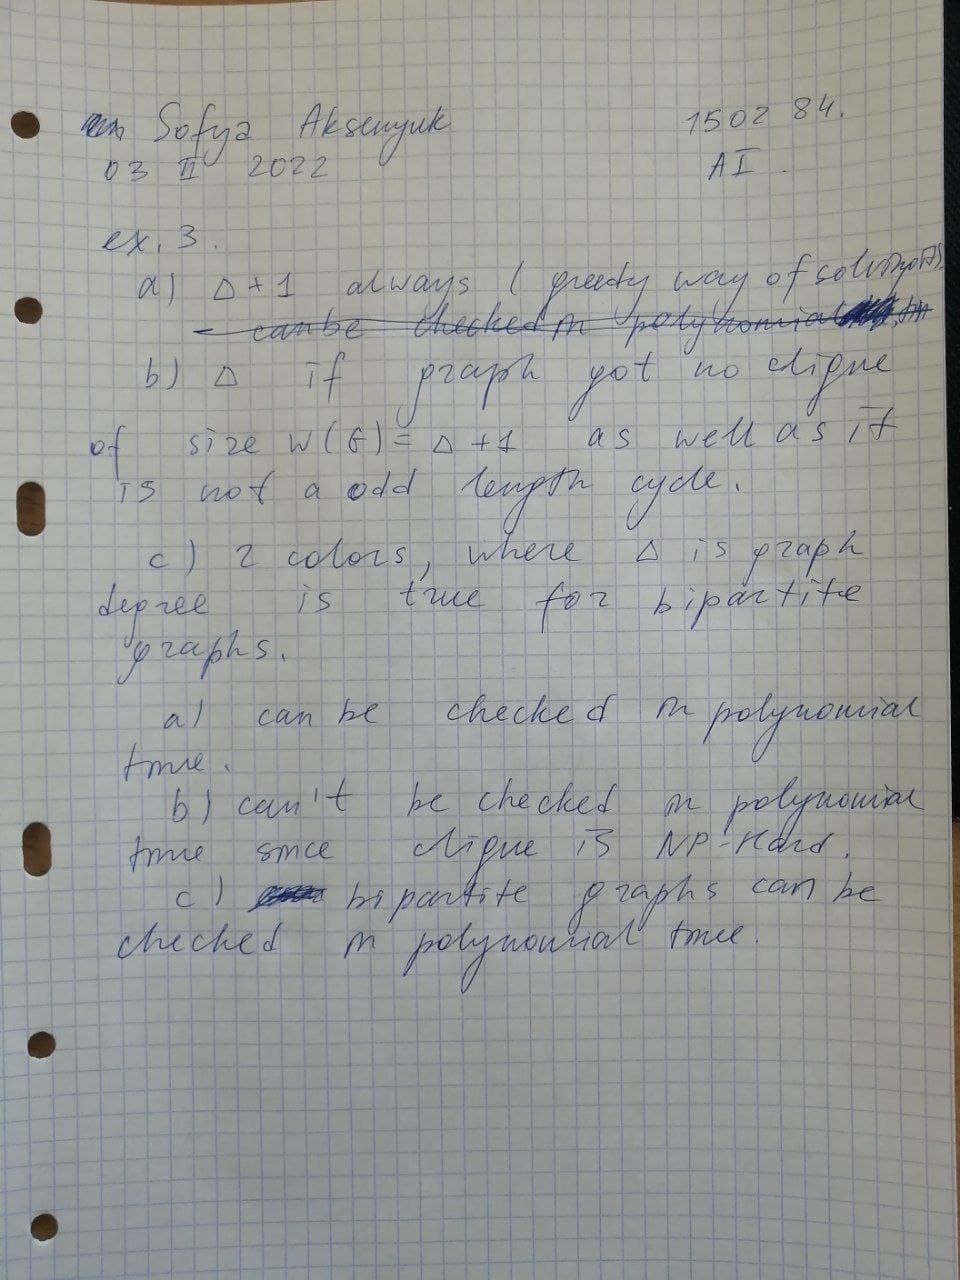 Sofya Aksenyuk 150284.
03 II 2022 AI.
ex. 3.
a) Δ+1 always ( greedy way of
can be checked in polynomial
b) Δ if graph got no clique
of size w(G)=Δ+1 as well as if
is not a odd length cycle.
c) 2 colors, where Δ is graph
degree is true for bipartite
graphs.
a) can be checked in polynomial
time.
b) can't be checked in polynomial
time since clique is NP-Hard.
c) bipartite graphs can be
checked in polynomial time.